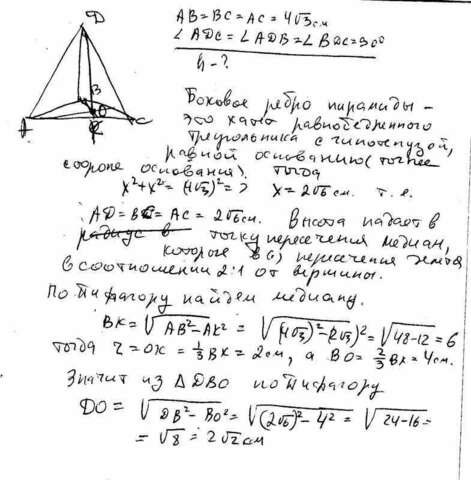 AB = BC = AC = 4√3 см
∠ADC = ∠ADB = ∠BDC = 90°
h - ?
D
B
O
A
K
C
Боковое ребро пирамиды -
это катет равнобедренного
треугольника с гипотенузой,
равной основанию (точнее
стороне основания). Тогда
x²+x² = (4√3)² = ? x = 2√6 см. т. е.
AD = BC = AC = 2√6 см. Высота падает в
радиус в точку пересечения медиан,
которые в пересечения
в соотношении 2:1 от вершины.
По Пифагору найдем медиану.
BK = √AB² - AK² = √(4√3)² - (2√3)² = √48-12 = 6
тогда r = OK = 1/3 BK = 2 см, а BO = 2/3 BK = 4 см.
Значит из △DBO по Пифагору
DO = √DB² - BO² = √(2√6)² - 4² = √24-16 =
= √8 = 2√2 см